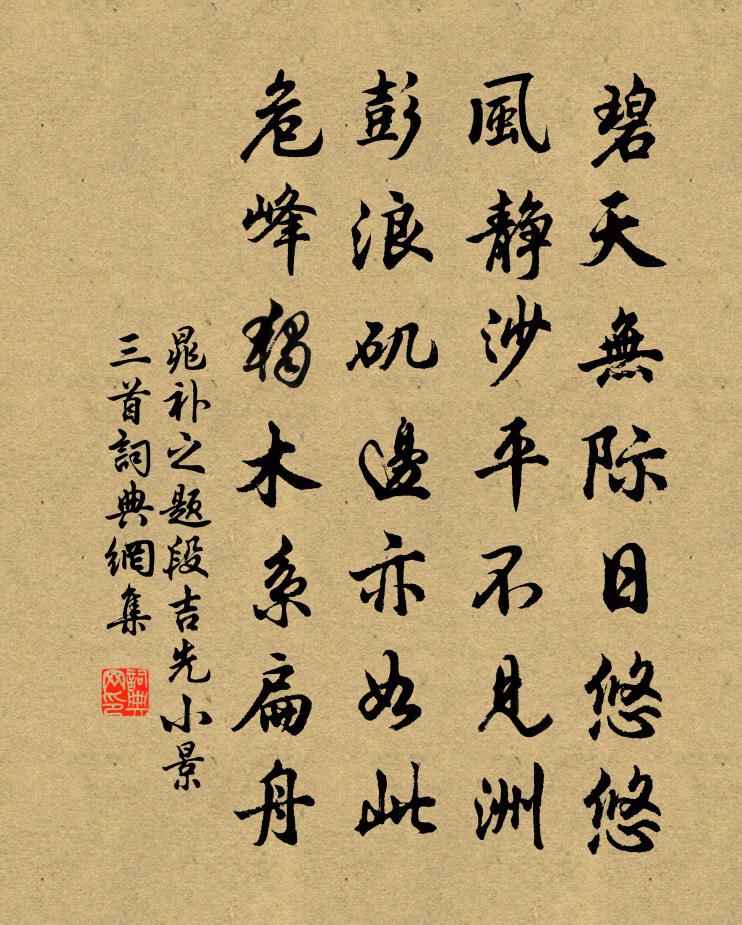 碧天無際日悠悠
風靜沙平不見洲
彭浪矶邊亦如此
危峰獨木系扁舟
晁补之题段吉先小景
三首詞典網集
詞典網印